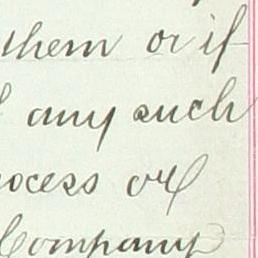 them or if
any such
ocess or
Company